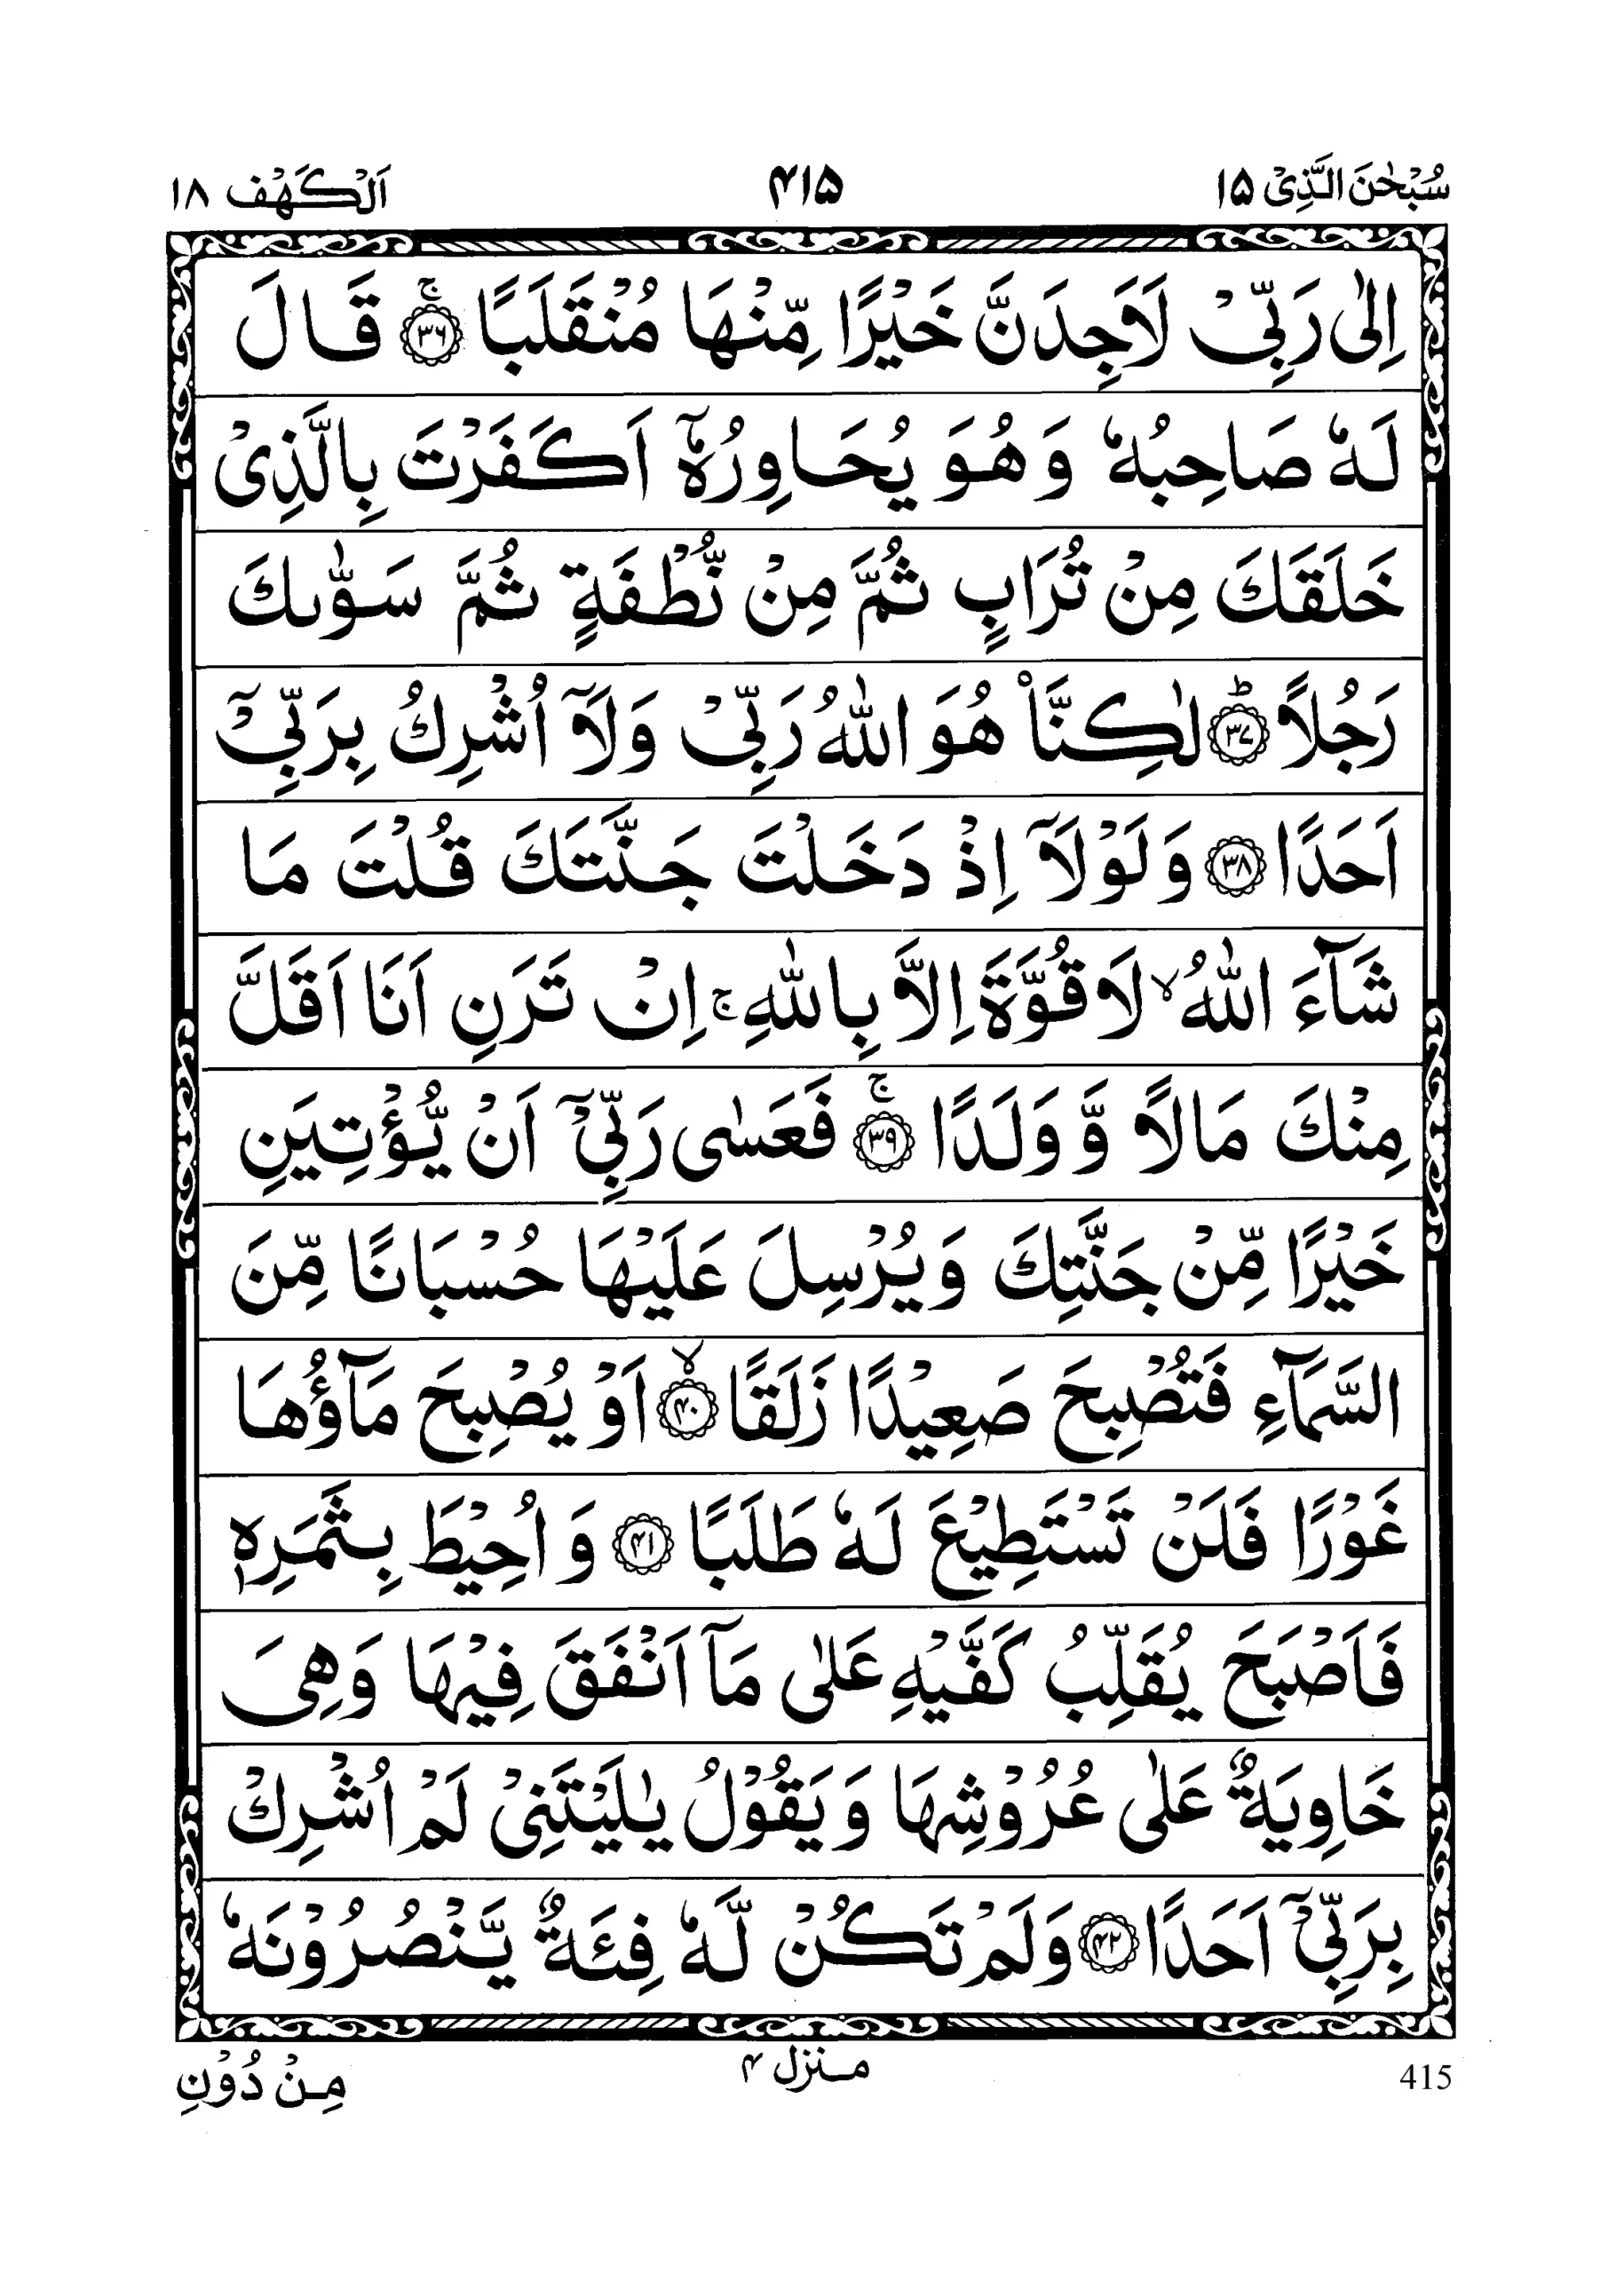 سُبْحٰنَ الَّذِیْ ۱۵ ۴۱۵ اَلْكَهْف ۱۸
اِلٰى رَبِّیْ لَاَجِدَنَّ خَیْرًا مِّنْهَا مُنْقَلَبًا ۚ﴿۳۶﴾ قَالَ
لَهٗ صَاحِبُهٗ وَهُوَ یُحَاوِرُهٗۤ اَكَفَرْتَ بِالَّذِیْ
خَلَقَكَ مِنْ تُرَابٍ ثُمَّ مِنْ نُّطْفَةٍ ثُمَّ سَوّٰىكَ
رَجُلًا ؕ﴿۳۷﴾ لٰكِنَّا۠ هُوَ اللّٰهُ رَبِّیْ وَلَاۤ اُشْرِكُ بِرَبِّیْۤ
اَحَدًا ﴿۳۸﴾ وَلَوْلَاۤ اِذْ دَخَلْتَ جَنَّتَكَ قُلْتَ مَا
شَآءَ اللّٰهُ ۙ لَا قُوَّةَ اِلَّا بِاللّٰهِ ۚ اِنْ تَرَنِ اَنَا اَقَلَّ
مِنْكَ مَالًا وَّ وَلَدًا ۚ﴿۳۹﴾ فَعَسٰى رَبِّیْۤ اَنْ یُّؤْتِیَنِ
خَیْرًا مِّنْ جَنَّتِكَ وَیُرْسِلَ عَلَیْهَا حُسْبَانًا مِّنَ
السَّمَآءِ فَتُصْبِحَ صَعِیْدًا زَلَقًا ۙ﴿۴۰﴾ اَوْ یُصْبِحَ مَآؤُهَا
غَوْرًا فَلَنْ تَسْتَطِیْعَ لَهٗ طَلَبًا ﴿۴۱﴾ وَ اُحِیْطَ بِثَمَرِهٖ
فَاَصْبَحَ یُقَلِّبُ كَفَّیْهِ عَلٰى مَاۤ اَنْفَقَ فِیْهَا وَهِیَ
خَاوِیَةٌ عَلٰى عُرُوْشِهَا وَ یَقُوْلُ یٰلَیْتَنِیْ لَمْ اُشْرِكْ
بِرَبِّیْۤ اَحَدًا ﴿۴۲﴾ وَلَمْ تَكُنْ لَّهٗ فِئَةٌ یَّنْصُرُوْنَهٗ
415 منزل ۴ مِنْ دُوْنِ